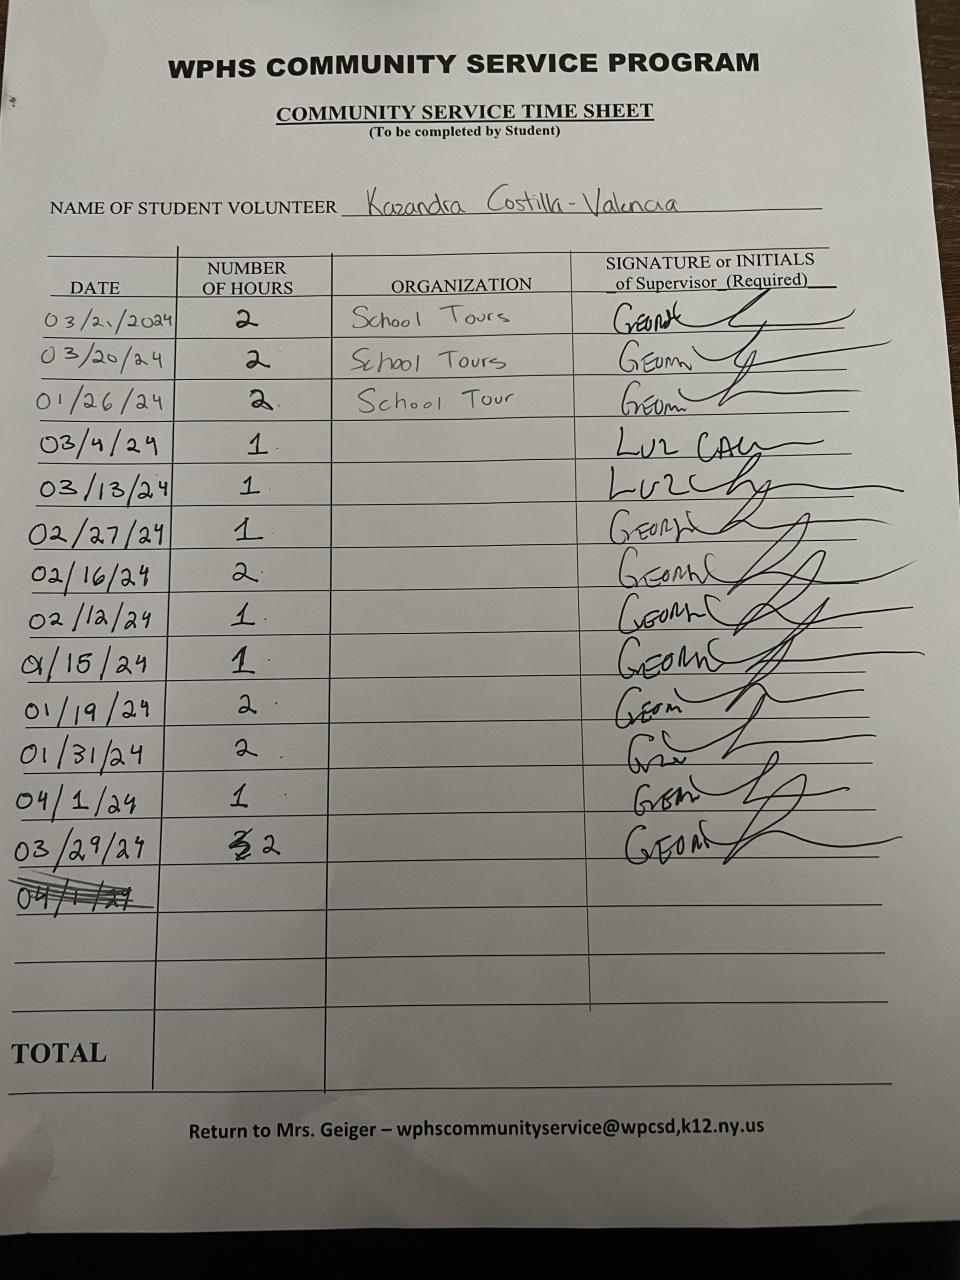 WPHS COMMUNITY SERVICE PROGRAM
COMMUNITY SERVICE TIME SHEET
(To be completed by Student)
NAME OF STUDENT VOLUNTEER Kazandra Costilla-Valencia
DATE NUMBER OF HOURS ORGANIZATION SIGNATURE or INITIALS of Supervisor (Required)
03/21/2024 2 School Tours
03/20/24 2 School Tours
01/26/24 2 School Tour
03/4/24 1 Luz
03/13/24 1 Luz
02/27/24 1
02/16/24 2
02/12/24 1
01/15/24 1
01/19/24 2
01/31/24 2
04/1/24 1
03/29/24 2
04/1/24
TOTAL
Return to Mrs. Geiger – wphscommunityservice@wpcsd,k12.ny.us